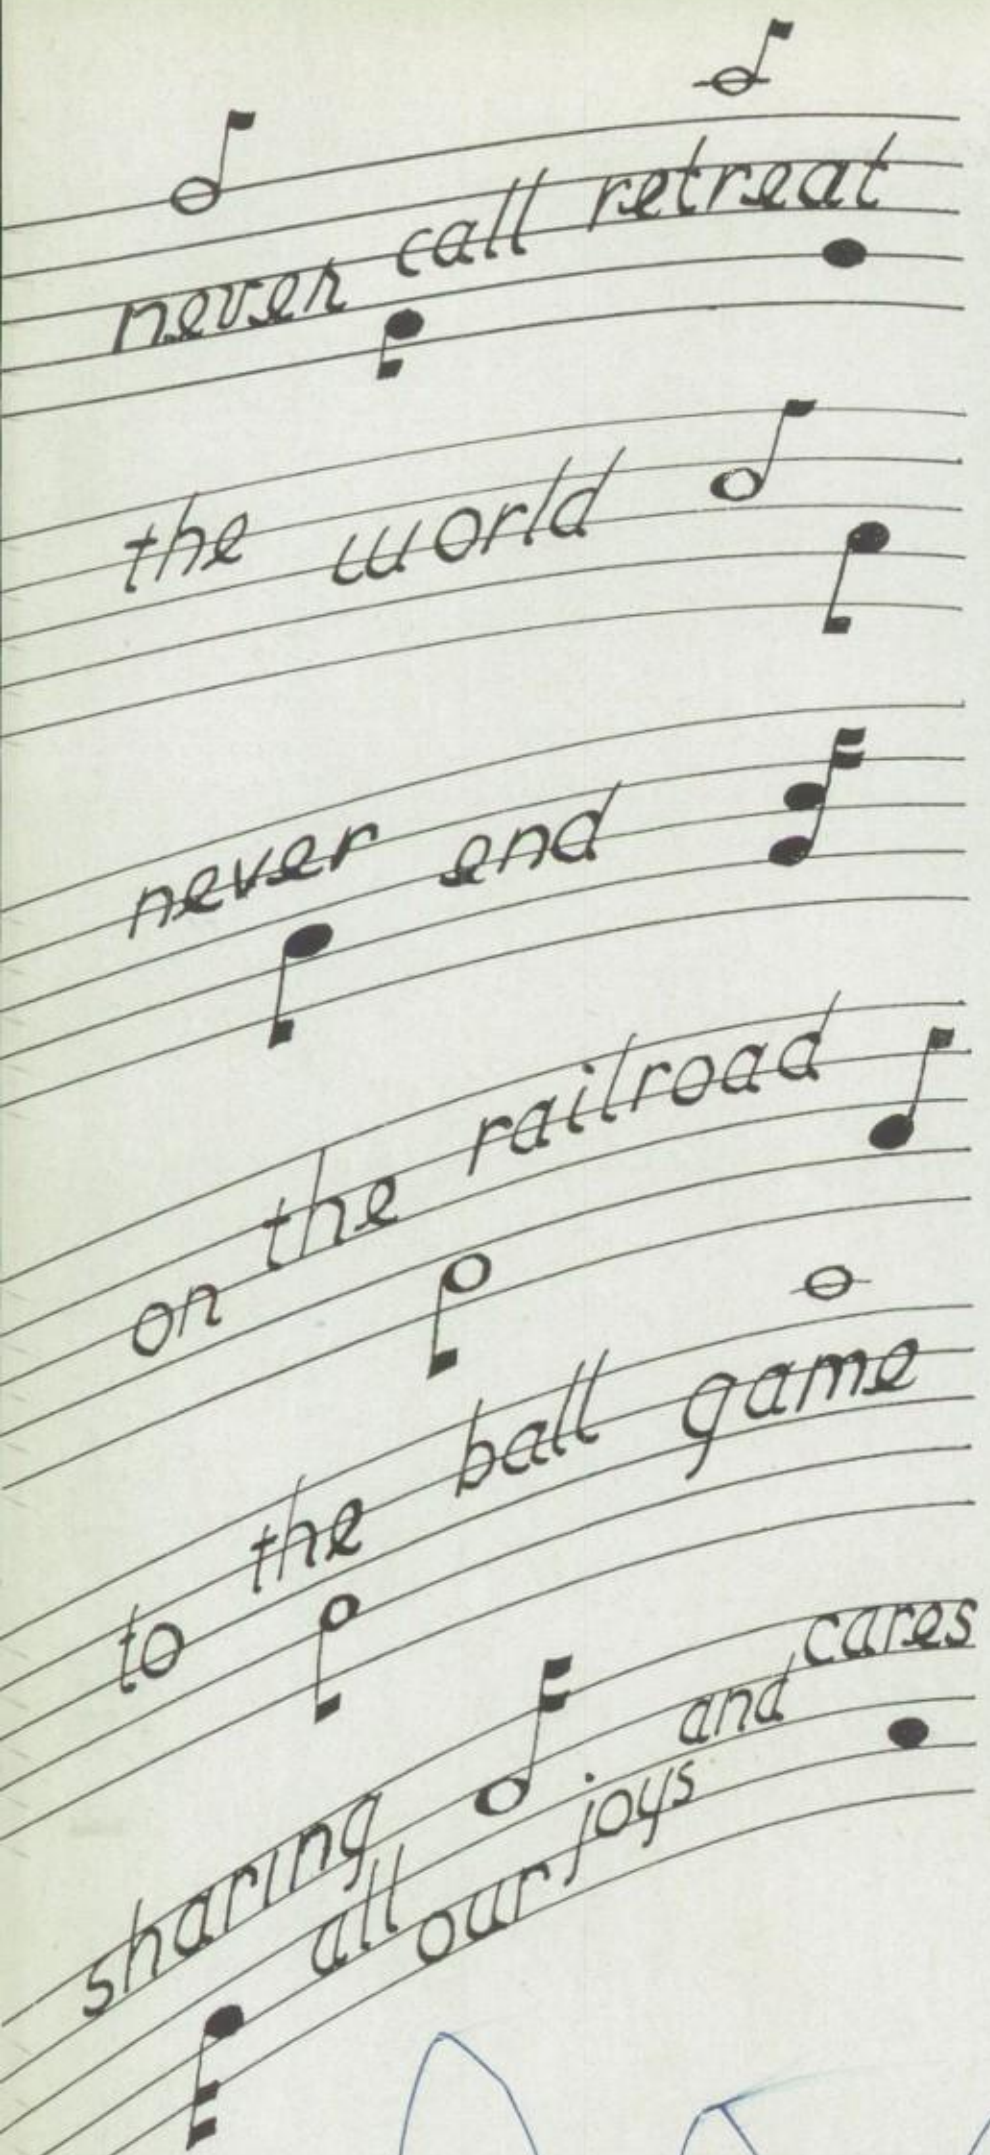 never call retreat
the world
never end
on the railroad
to the ball game
sharing
all our joys and cares